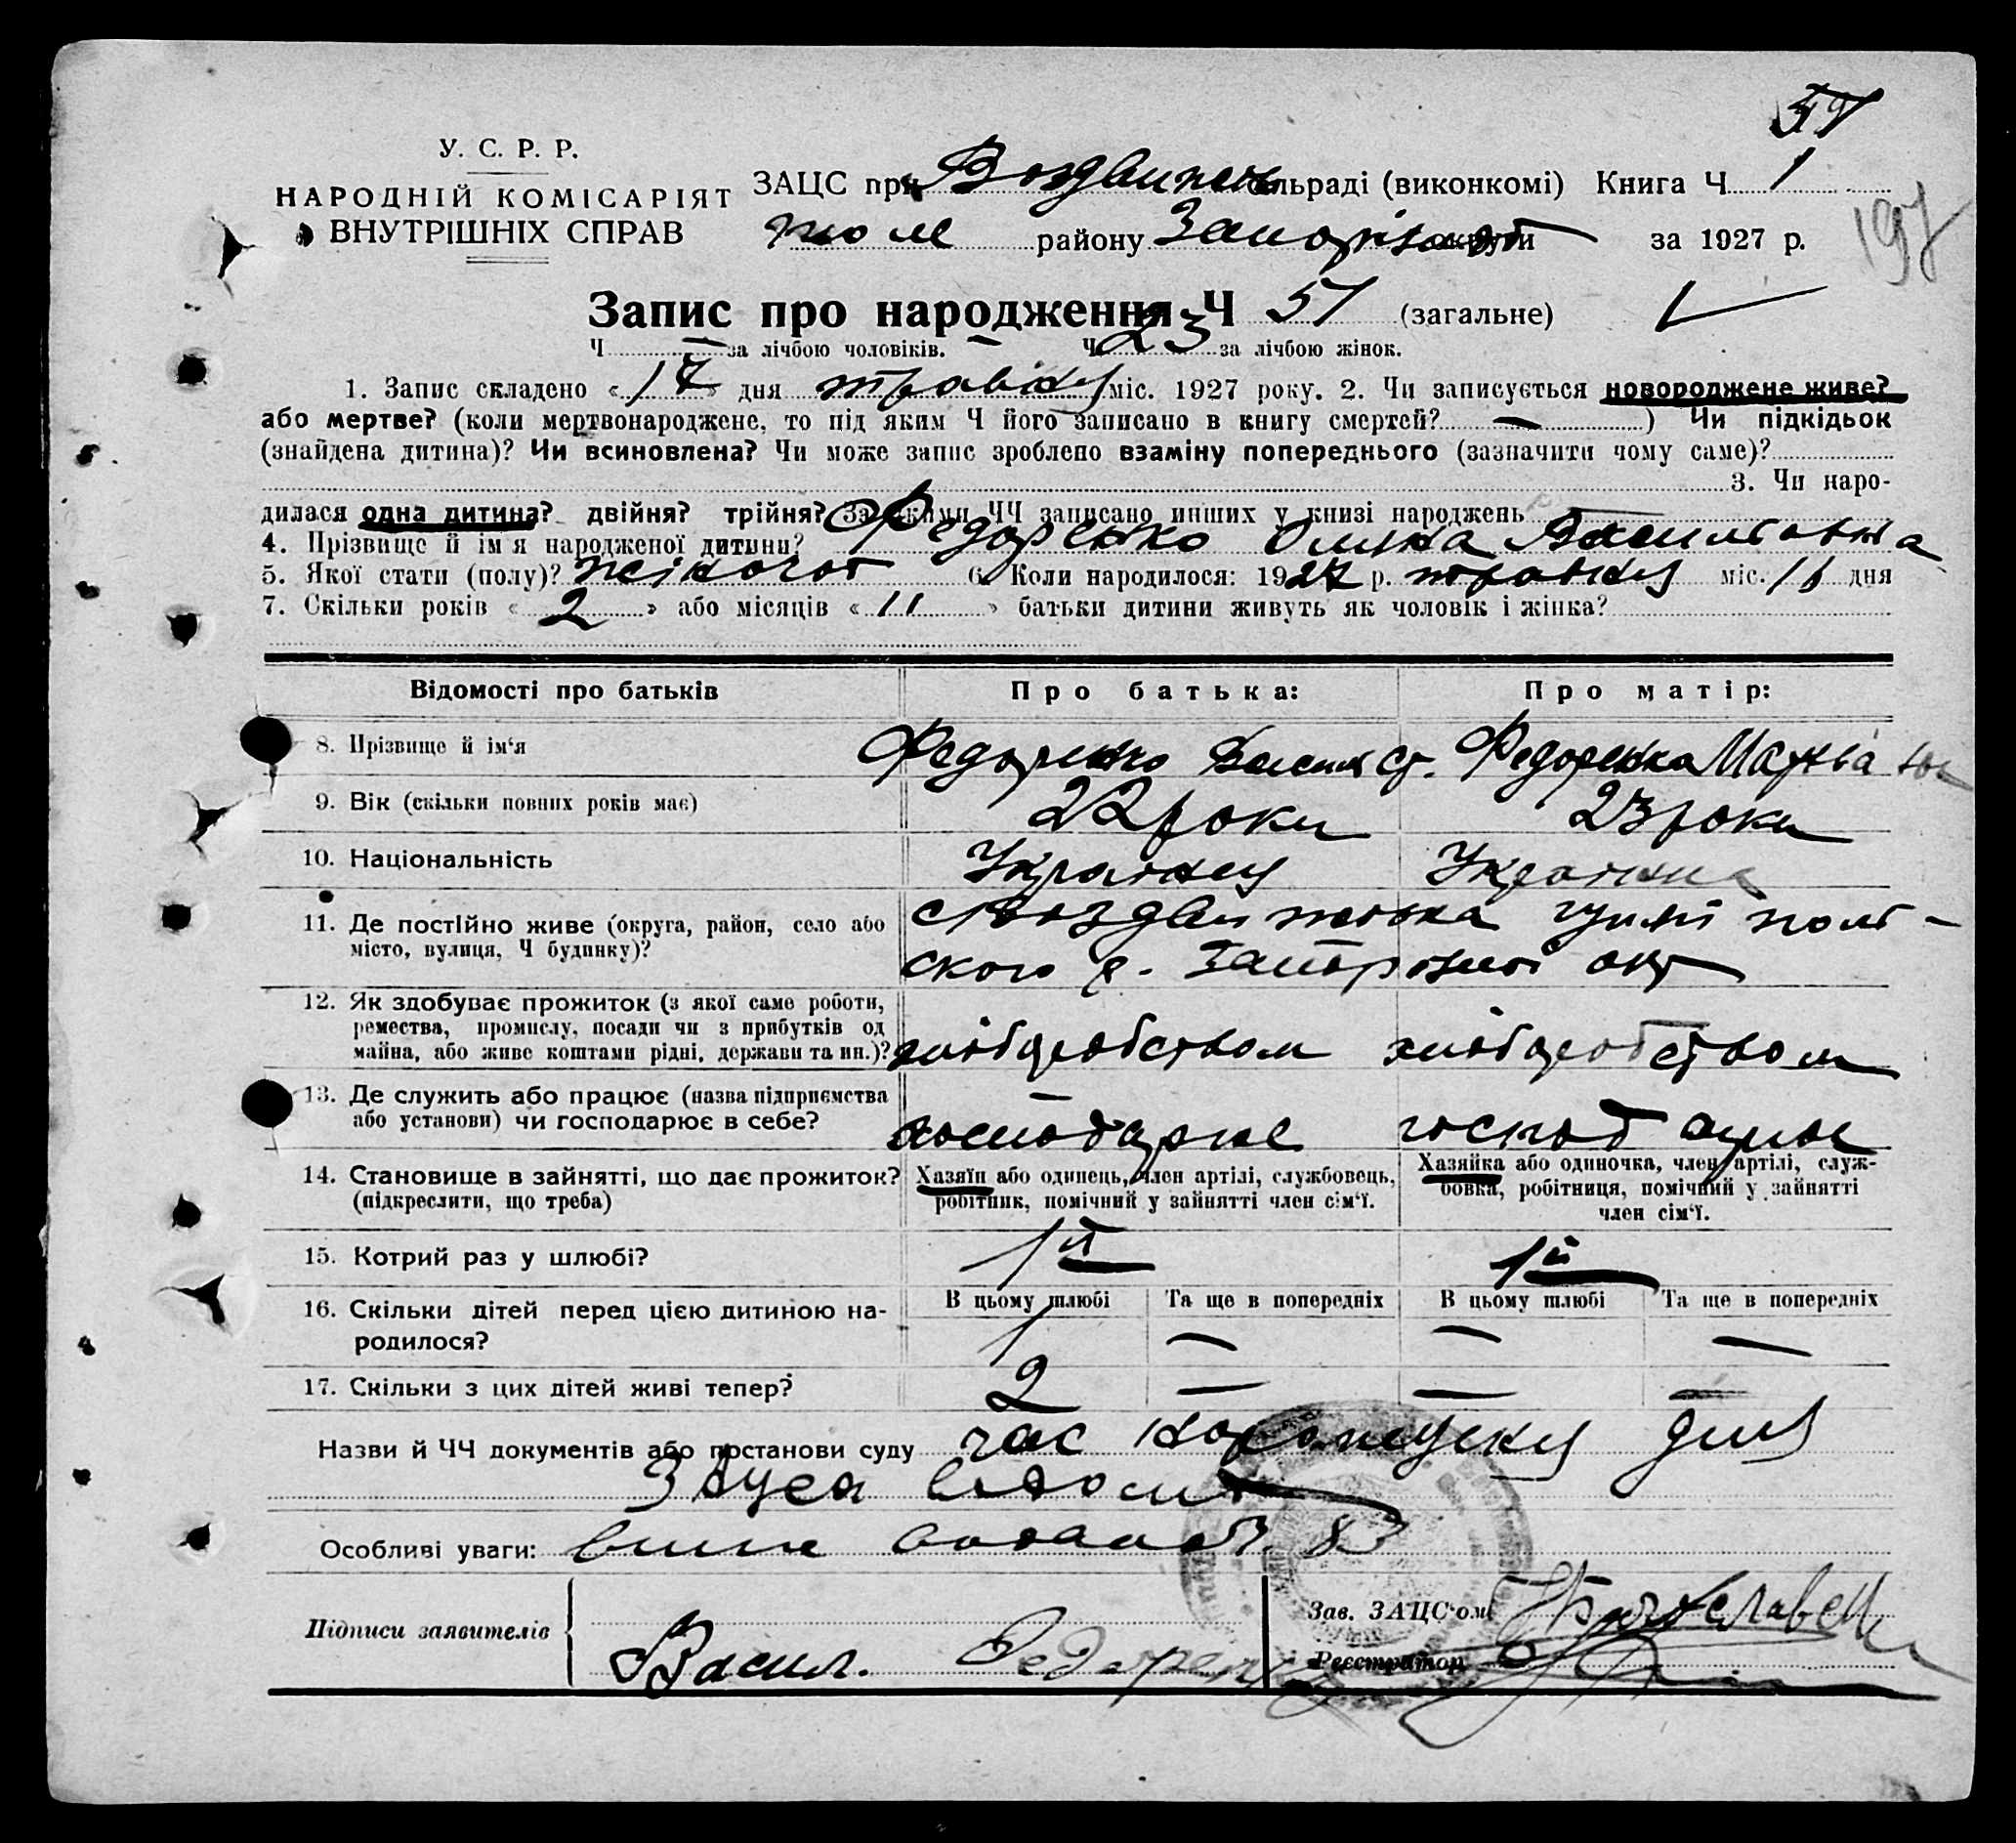 57
У. С. Р. Р.
НАРОДНІЙ КОМІСАРІЯТ
ВНУТРІШНІХ СПРАВ
ЗАЦС при Воздвижен сільраді (виконкомі) Книга Ч 1
району Запорізької округи за 1927 р.
197
Запис про народження Ч 57 (загальне)
Ч — за лічбою чоловіків. — Ч 23 за лічбою жінок.
1. Запис складено « 17 » дня травня міс. 1927 року. 2. Чи записується новороджене живе?
або мертве? (коли мертвонароджене, то під яким Ч його записано в книгу смертей? — ) Чи підкідьок
(знайдена дитина)? Чи всиновлена? Чи може запис зроблено взаміну попереднього (зазначити чому саме)?
3. Чи наро-
дилася одна дитина? двійня? трійня? За якими ЧЧ записано инших у книзі народжень
4. Прізвище й ім'я народженої дитини? Федоренко Василівна
5. Якої стати (полу)? жіночот 6. Коли народилося: 1927 р. травня міс. 16 дня
7. Скільки років « 2 » або місяців « 11 » батьки дитини живуть як чоловік і жінка?
Відомості про батьків Про батька: Про матір:
8. Прізвище й ім'я Федоренко Василь Ст. Федоренко Марія
9. Вік (скільки повних років має) 22 роки 23 роки
10. Національність Українець Українка
11. Де постійно живе (округа, район, село або місто, вулиця, Ч будинку)? с Воздвижовка гуляй поль-
ського р. Запорізької окр
12. Як здобуває прожиток (з якої саме роботи,
ремества, промислу, посади чи з прибутків од
майна, або живе коштами рідні, держави та ин.)? хліборобством хліборобством
13. Де служить або працює (назва підприємства
або установи) чи господарює в себе? господарює господарює
14. Становище в зайнятті, що дає прожиток?
(підкреслити, що треба)
Хазяїн або одинець, член артілі, службовець,
робітник, помічний у зайнятті член сім'ї.
Хазяйка або одиночка, член артілі, служ-
бовка, робітниця, помічний у зайнятті
член сім'ї.
15. Котрий раз у шлюбі? 1й 1й
В цьому шлюбі Та ще в попередніх В цьому шлюбі Та ще в попередніх
16. Скільки дітей перед цією дитиною на-
родилося? 1 — — —
17. Скільки з цих дітей живі тепер? 2 — — —
Назви й ЧЧ документів або постанови суду час
Особливі уваги:
Підписи заявителів
Васил. Федоренко
Зав. ЗАЦС'ом
Реєстратор